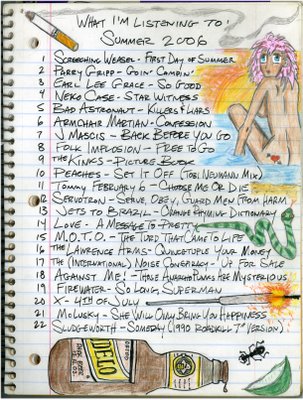 WHAT I'M LISTENING TO:
SUMMER 2006
1 SCREECHING WEASEL - FIRST DAY OF SUMMER
2 PARRY GRIPP - GOIN' CAMPIN'
3 EARL LEE GRACE - SO GOOD
4 NEKO CASE - STAR WITNESS
5 BAD ASTRONAUT - KILLERS & LIARS
6 ARMCHAIR MARTIAN - CONFESSION
7 J MASCIS - BACK BEFORE YOU GO
8 FOLK IMPLOSION - FREE TO GO
9 THE KINGS - PICTURE BOOK
10 PEACHES - SET IT OFF (TOBI NEUMANN MIX)
11 TOMMY FEBRUARY 6 - CHOOSE ME OR DIE
12 SERVOTRON - SERVE, OBEY, GUARD MEN FROM HARM
13 JETS TO BRAZIL - ORANGE RHYMING DICTIONARY
14 LOVE - A MESSAGE TO PRETTY
15 M.O.T.O. - THE TURD THAT CAME TO LIFE
16 THE LAWRENCE ARMS - QUINCENTUPLE YOUR MONEY
17 THE (INTERNATIONAL) NOISE CONSPIRACY - UP FOR SALE
18 AGAINST ME! - THOSE ANARCHO PUNKS ARE MYSTERIOUS
19 FIREWATER - SO LONG, SUPERMAN
20 X - 4TH OF JULY
21 MCLUSKY - SHE WILL ONLY BRING YOU HAPPINESS
22 SLUDGEWORTH - SOMEDAY (1990 ROADKILL 7" VERSION)
DELO